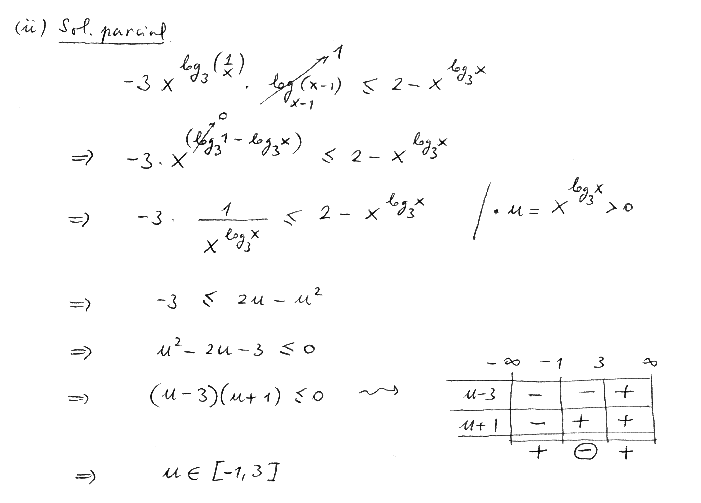 (ii) Sol. parcial
-3 x^{log_3(1/x)} · log_{x-1}(x-1) ≤ 2 - x^{log_3 x}
1
⇒ -3 · x^{(log_3 1 - log_3 x)} ≤ 2 - x^{log_3 x}
0
⇒ -3 · 1/x^{log_3 x} ≤ 2 - x^{log_3 x} / · u = x^{log_3 x} > 0
⇒ -3 ≤ 2u - u²
⇒ u² - 2u - 3 ≤ 0
⇒ (u-3)(u+1) ≤ 0 ⇝
-∞ -1 3 ∞
u-3 - - +
u+1 - + +
+ ⊖ +
⇒ u ∈ [-1, 3]